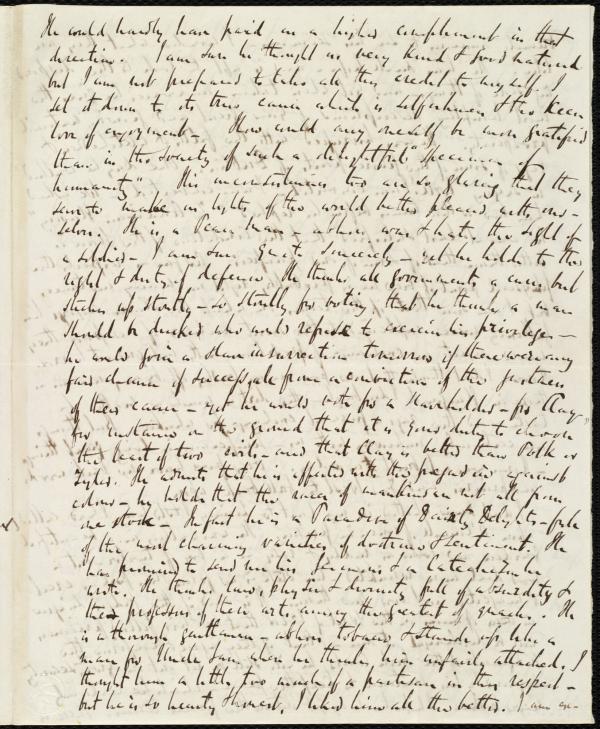 He could hardly have paid us a higher compliment in that
direction. I am sure he thought us very kind & good natured
but I am not prepared to take all this credit to myself. I
set it down to its true cause which is selfishness & too keen
love of enjoyment - How could any oneself be more gratified
than in the society of such a delightful "specimen of
humanity". His inconsistencies too are so glaring that they
seem to make us lights of the world better pleased with our-
selves. He is a Peace man - abhors war & hates the sight of
a soldier - I am sure quite sincerely - yet he holds to the
right & duty of defence He thinks all governments a curse but
sticks up stoutly - so stoutly for voting, that he thinks a man
should be ducked who would refuse to exercise his privilege -
he would join a slave insurrection tomorrow if there were any
fair chance of success, from a conviction of the justness
of their cause - yet he would vote for a slaveholder - for Clay
for instance on the ground that it is your duty to choose
the least of two evils - and that Clay is better than Polk or
Tyler. He admits that he is affected with the prejudice against
colour - he holds that the races of mankind are not all from
one stock - In fact he is a Paradise of Dainty Delights - full
of the most charming varieties of doctrine & sentiment. He
has promised to send me his sermons & a catechism he
wrote. He thinks law, physic & divinity full of absurdity &
the professors of their arts among the greatest of quacks. He
is a thorough gentleman - abhors tobacco & stands up like a
man for Uncle Sam when he thinks him unfairly attacked, I
thought him a little too much of a partisan in this respect -
but he is so hearty & honest, I liked him all the better. I am